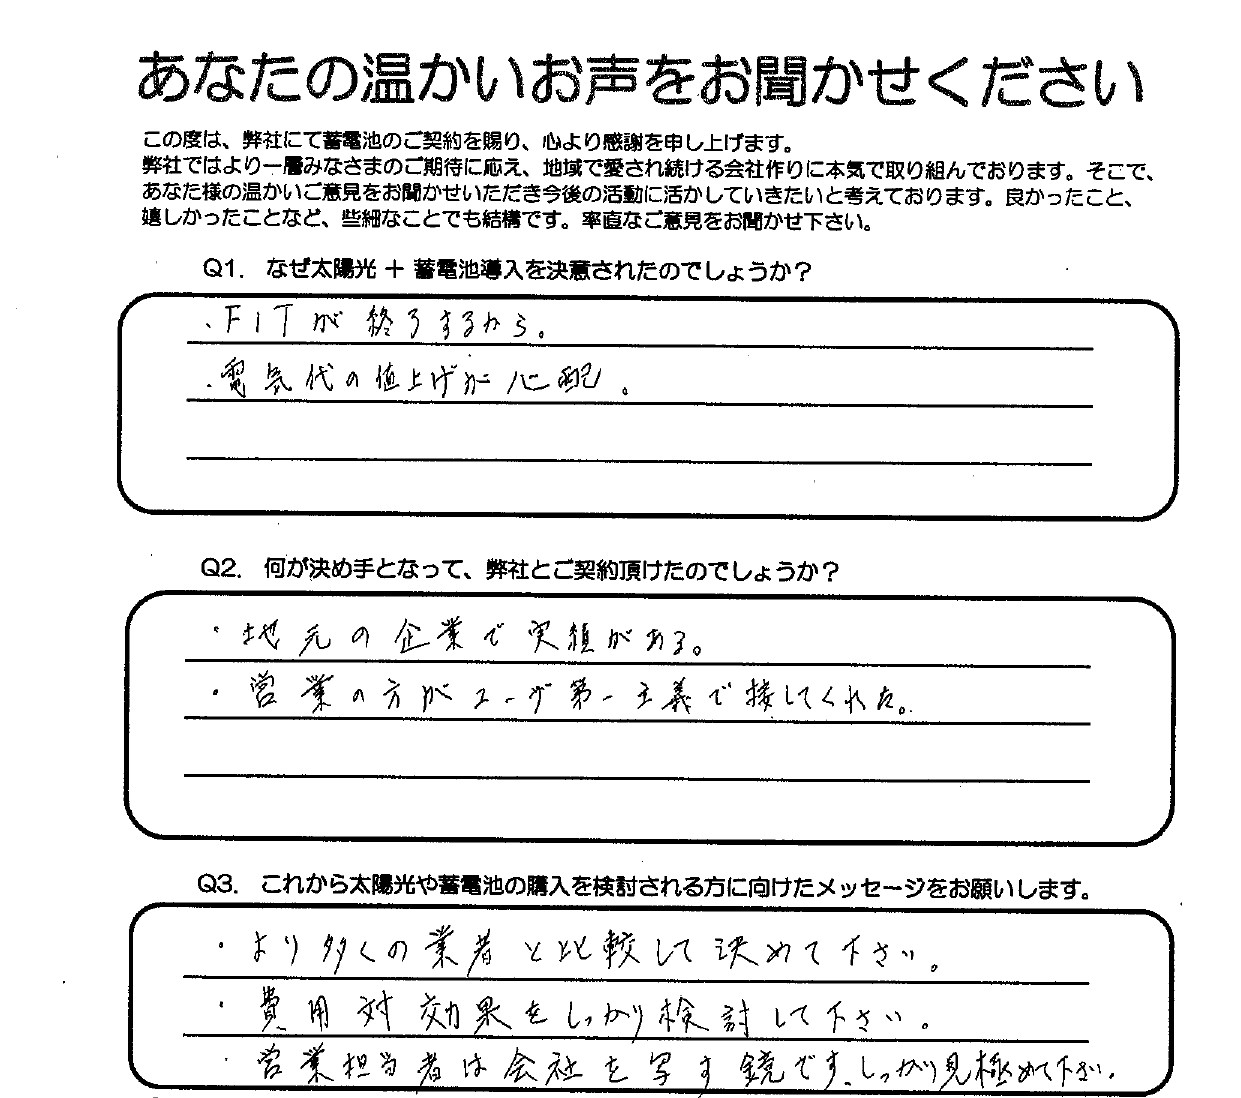 あなたの温かいお声をお聞かせください
この度は、弊社にて蓄電池のご契約を賜り、心より感謝を申し上げます。
弊社ではより一層みなさまのご期待に応え、地域で愛され続ける会社作りに本気で取り組んでおります。そこで、
あなた様の温かいご意見をお聞かせいただき今後の活動に活かしていきたいと考えております。良かったこと、
嬉しかったことなど、些細なことでも結構です。率直なご意見をお聞かせ下さい。
Q1. なぜ太陽光 + 蓄電池導入を決意されたのでしょうか?
・FITが終了するから。
・電気代の値上げが心配。
Q2. 何が決め手となって、弊社とご契約頂けたのでしょうか?
・地元の企業で実績がある。
・営業の方がユーザ第一主義で接してくれた。
Q3. これから太陽光や蓄電池の購入を検討される方に向けたメッセージをお願いします。
・より多くの業者と比較して決めて下さい。
・費用対効果をしっかり検討して下さい。
・営業担当者は会社を写す鏡です、しっかり見極めて下さい。